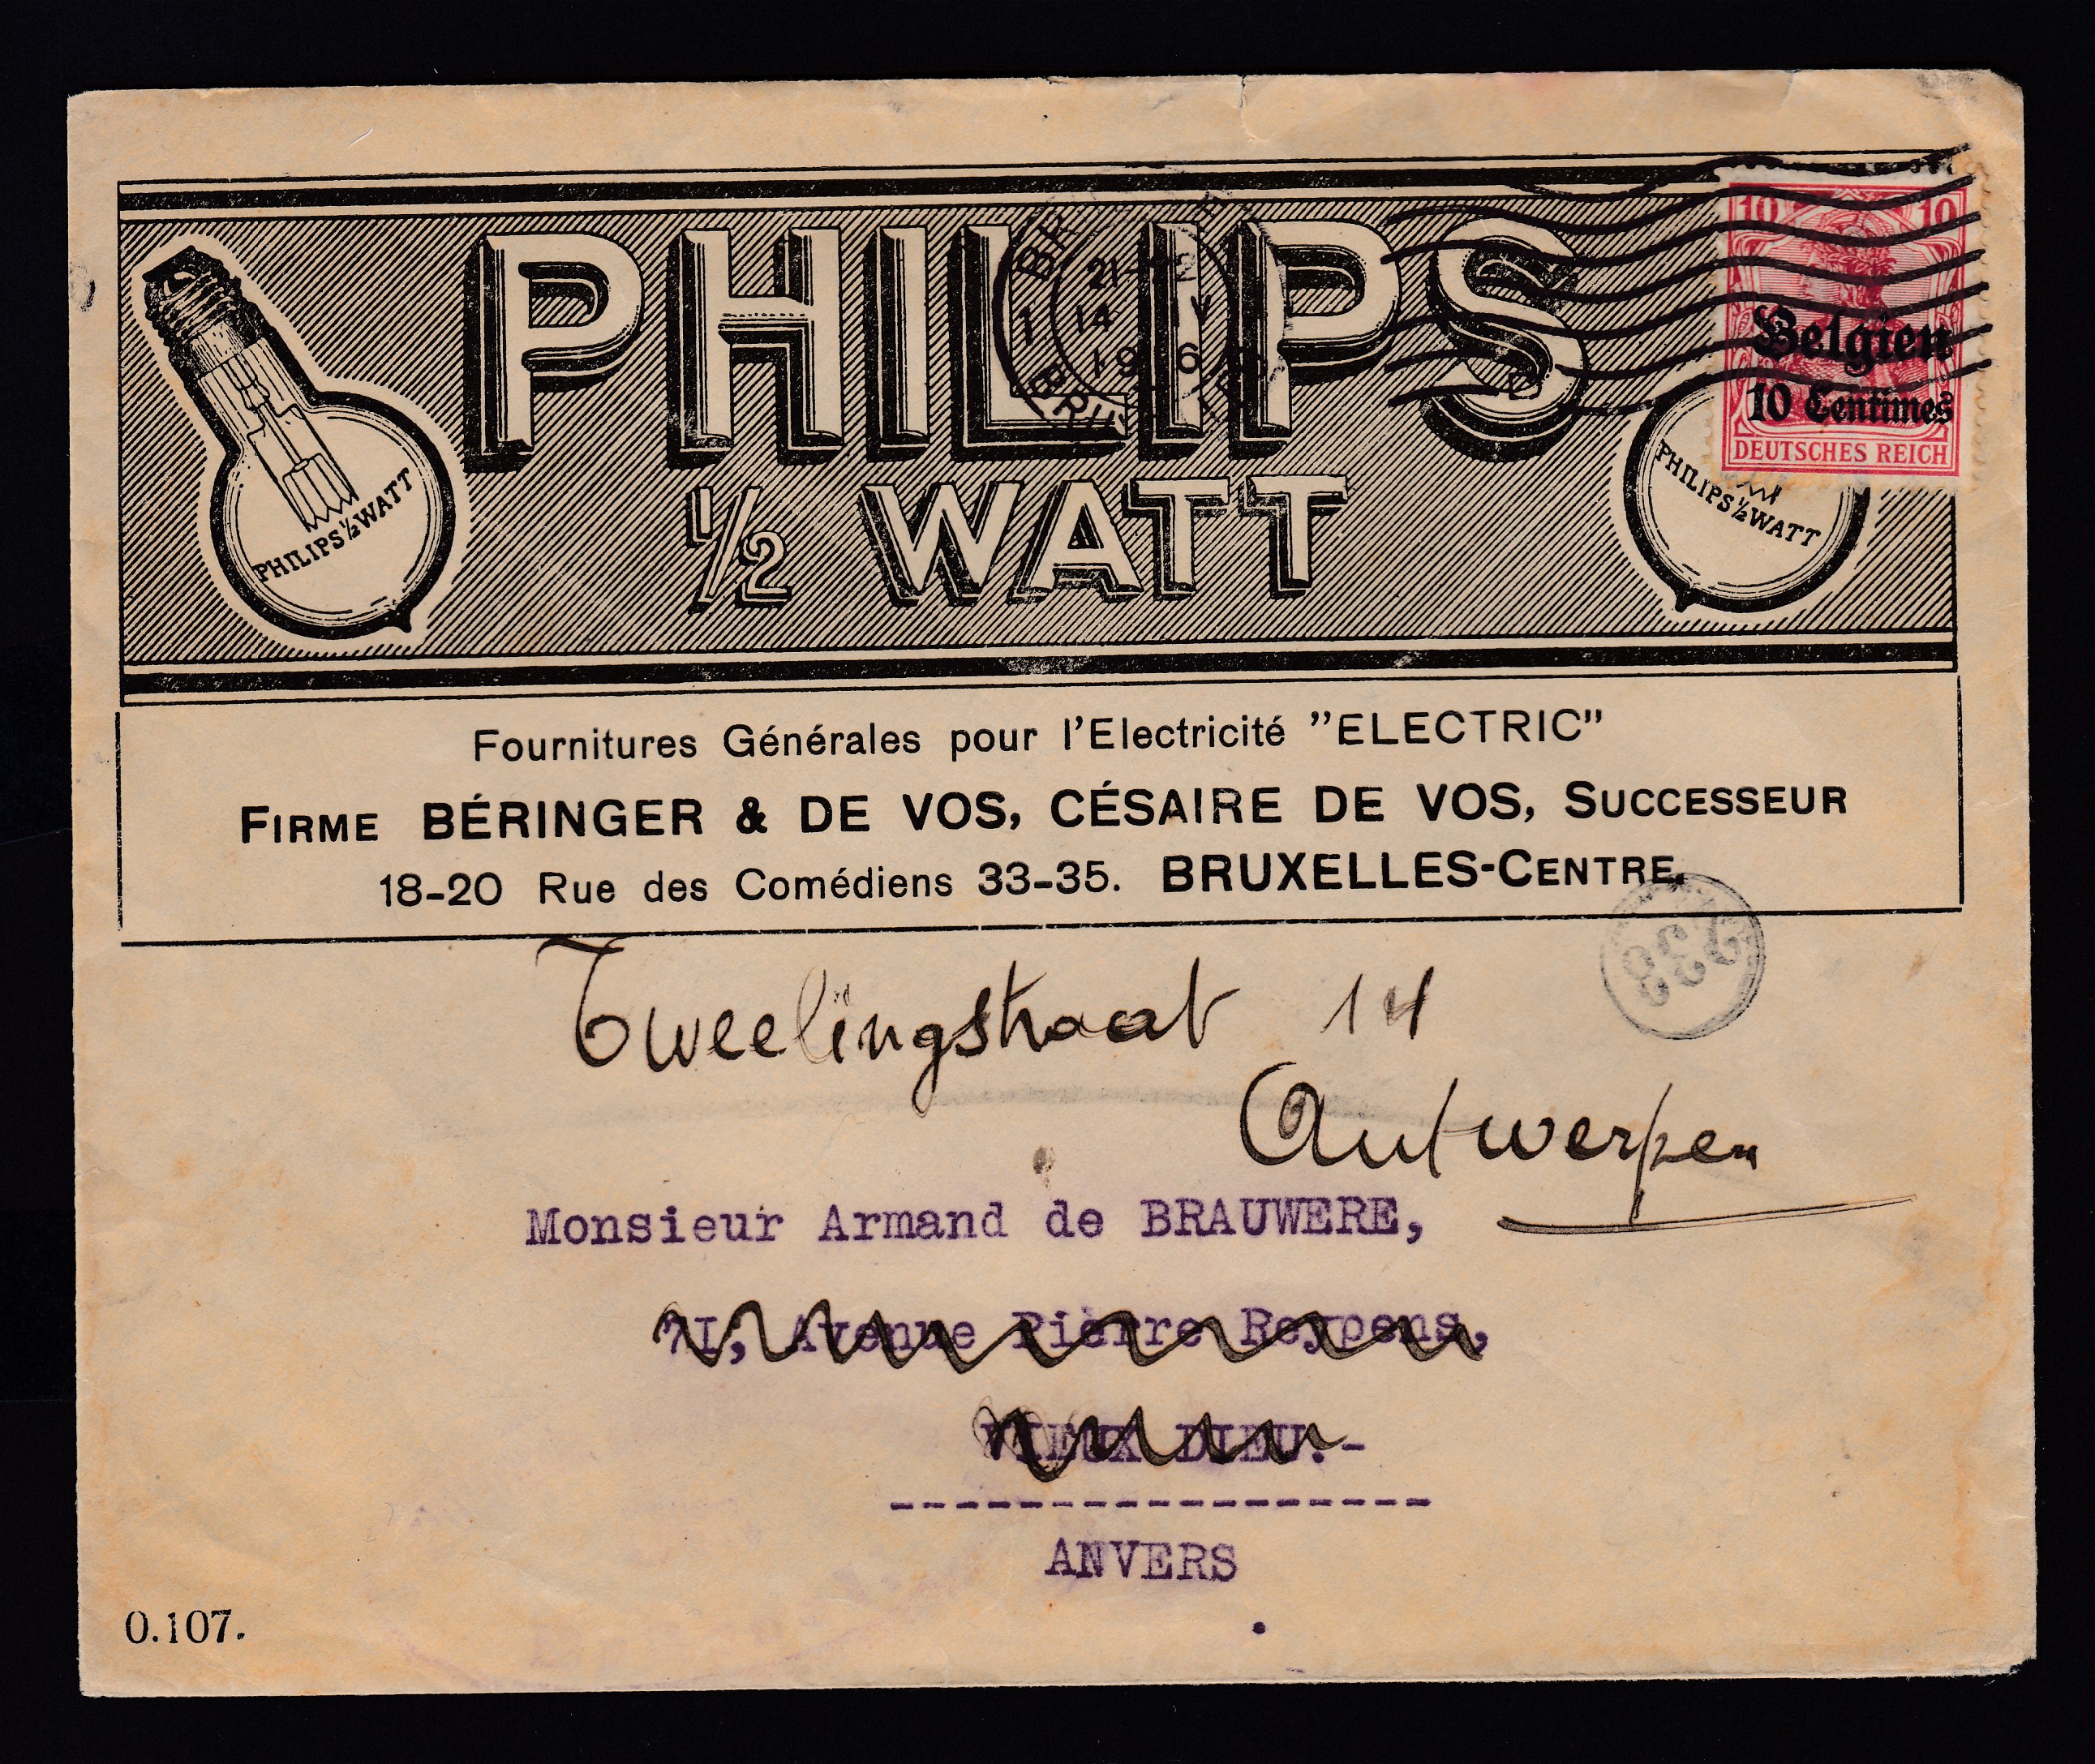 PHILIPS
½ WATT
PHILIPS ½ WATT
PHILIPS ½ WATT
10 10
Belgien
10 Centimes
DEUTSCHES REICH
21-22
14 IV
1 19 6
Fournitures Générales pour l'Electricité "ELECTRIC"
FIRME BÉRINGER & DE VOS, CÉSAIRE DE VOS, SUCCESSEUR
18-20 Rue des Comédiens 33-35. BRUXELLES-CENTRE.
233
Tweelingstraat 14
Antwerpen
Monsieur Armand de BRAUWERE,
71, Avenue Pièrre Reypens,
VIEUX DIEU.-
------------------
ANVERS
0.107.